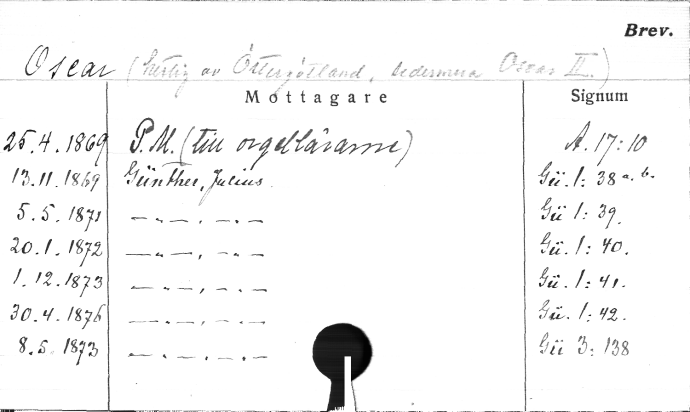 Brev.
Oscar (hertig av Östergötland, sedermera Oscar II.)
Mottagare Signum
25.4.1869 P.M. (till orgelläraren) A. 17:10
13.11.1869 Günther, Julius. Gü. 1: 38 a. b.
5.5.1871 — „ —, — „ — Gü 1: 39.
20.1.1872 — „ —, — „ — Gü. 1: 40.
1.12.1873 — „ —, — „ — Gü. 1: 41.
30.4.1876 — „ —, — „ — Gü. 1: 42.
8.5.1873 — „ —, — „ — Gü 3: 138